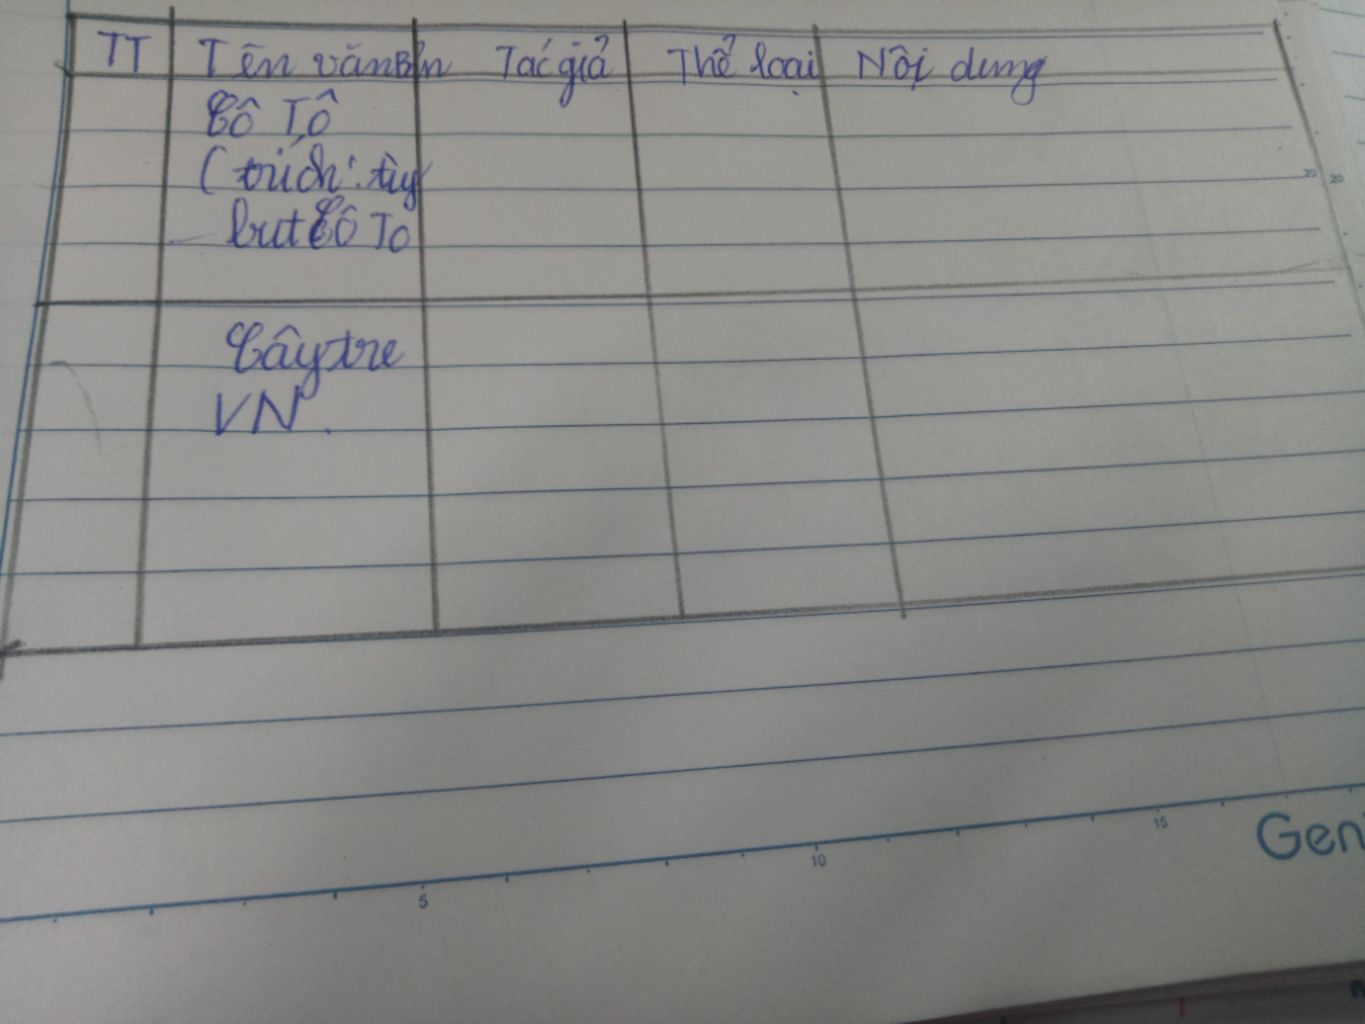 TT Tên văn Bản Tác giả Thể loại Nội dung
Cô Tô
(trích: tùy
but Cô To
Cây tre
VN.
20 20
5 10 15
Gen